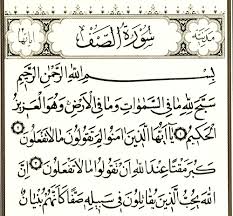 سُورَةُ الصَّفِّ
بِسْمِ اللَّهِ الرَّحْمَٰنِ الرَّحِيمِ
سَبَّحَ لِلَّهِ مَا فِي السَّمَٰوَاتِ وَمَا فِي الْأَرْضِ وَهُوَ الْعَزِيزُ
الْحَكِيمُ يَٰٓأَيُّهَا الَّذِينَ آمَنُوا لِمَ تَقُولُونَ مَا لَا تَفْعَلُونَ
كَبُرَ مَقْتًا عِندَ اللَّهِ أَن تَقُولُوا مَا لَا تَفْعَلُونَ إِنَّ
اللَّهَ يُحِبُّ الَّذِينَ يُقَاتِلُونَ فِي سَبِيلِهِ صَفًّا كَأَنَّهُم بُنْيَانٌ